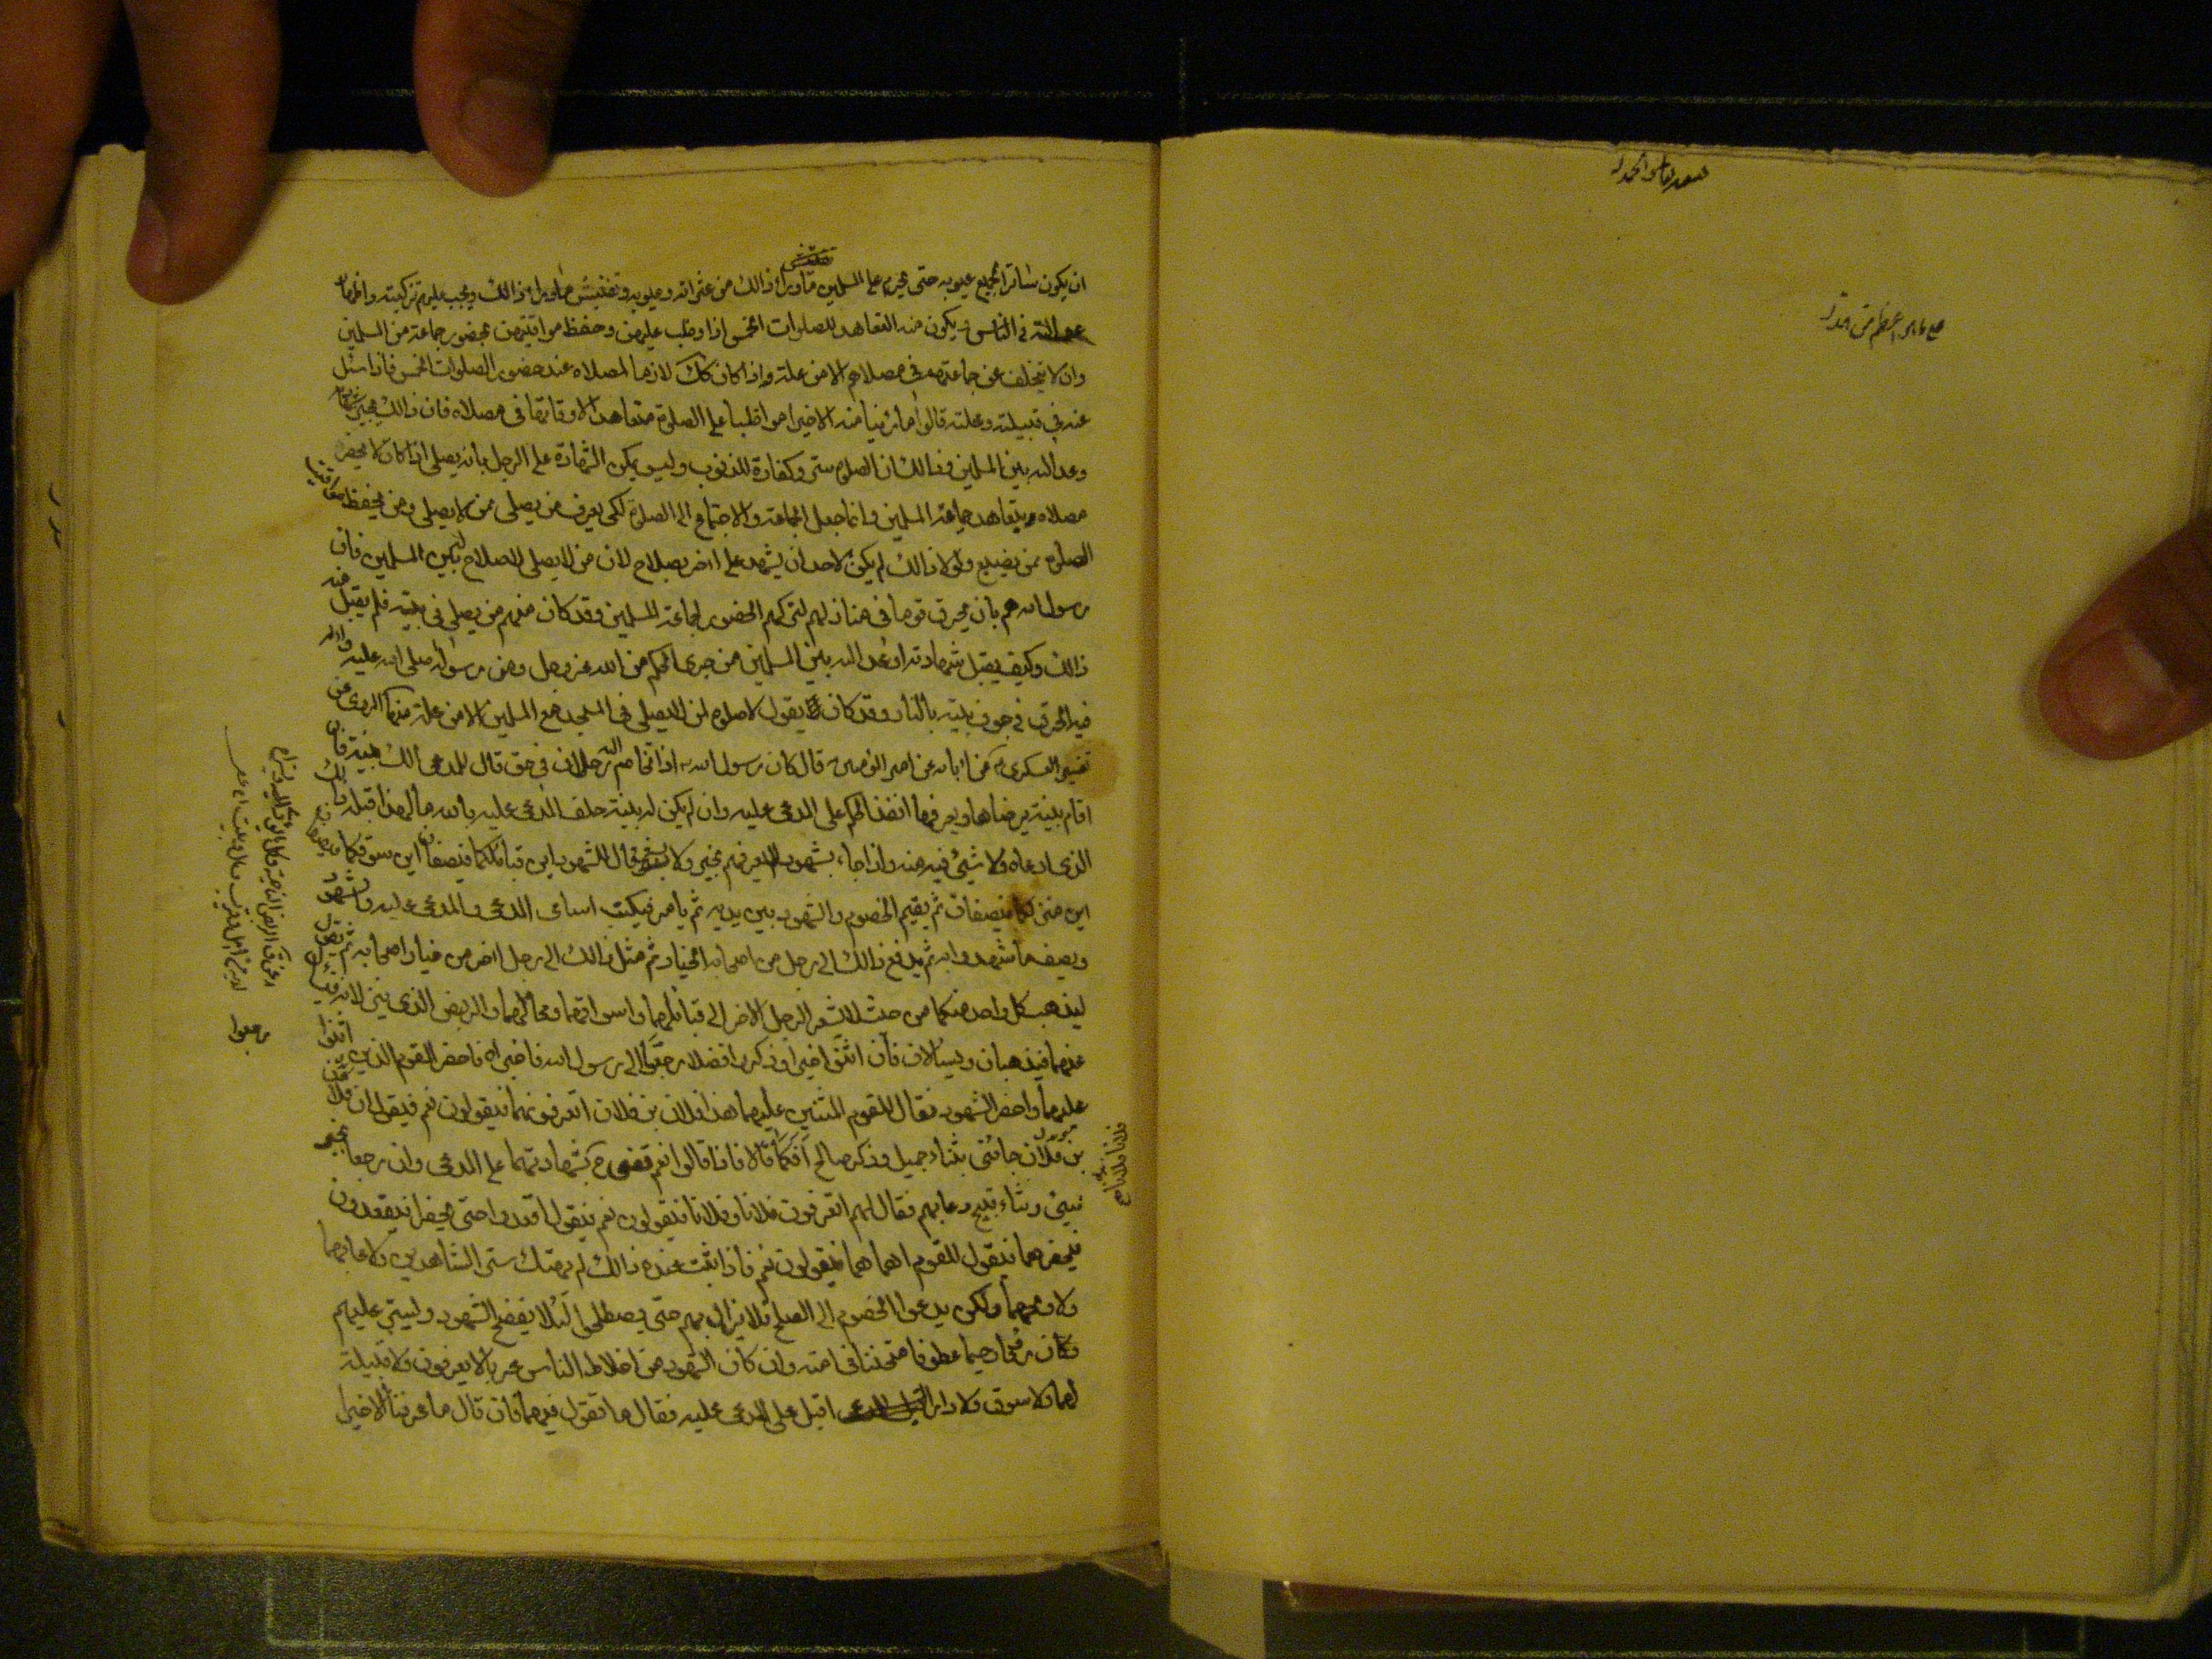 ان يكون ساترا لجميع عيوبه حتى يحرم على المسلمين ما وراء ذالك من عثراته وعيوبه وتفتيش ما وراء ذالك ويجب عليهم تزكيته واظهار
عدالته في الناس ويكون منه التعاهد للصلوات الخمس اذا وظب عليهن وحفظ مواقيتهن بحضور جماعة من المسلمين
وان لا يتخلف عن جماعتهم في مصلاهم الا من علة واذا كان كك لازما لمصلاه عند حضور الصلوات الخمس فاذا سئل
عنه في قبيلته ومحلته قالوا ما رئينا منه الا خيرا مواظبا على الصلوة متعاهدا لاوقاتها في مصلاه فان ذالك يجيز شهادته
وعدالته بين المسلمين وذالك ان الصلوة ستر وكفارة للذنوب وليس يمكن الشهادة على الرجل بانه يصلي اذا كان لا يحضر
مصلاه ويتعاهد جماعة المسلمين وانما جعل الجماعة والاجتماع الى الصلوة لكى يعرف من يصلى ممن لا يصلى ومن يحفظ مواقيت
الصلوة ممن يضيع ولولا ذالك لم يكن لاحد ان يشهد على اخر بصلاح لان من لا يصلى لا صلاح له بين المسلمين فان
رسول الله هم بان يحرق قوما في منازلهم لتركهم الحضور لجماعة المسلمين وقد كان منهم من يصلى في بيته فلم يقبل منه
ذالك وكيف يقبل شهادته او عدالته بين المسلمين ممن جرى الحكم من الله عز وجل ومن رسوله صلى الله عليه واله
فيه الحرق في جوف بيته بالنار وقد كان يقول لا صلوة لمن لا يصلى في المسجد مع المسلمين الا من علة منها المروى عن
تفسير العسكرى عن ابائه عن امير المومنين قال كان رسول الله اذا تخاصم اليه رجلان في حق قال للمدعى الك بينة فان
اقام بينة يرضاها ويعرفها انفذ الحكم على المدعى عليه وان لم يكن له بينة حلف المدعى عليه بالله ما لهذا قبله ذالك
الذى ادعاه ولا شيئ فيه منه واذا جاء بشهود لا يعرفهم بخير ولا بشر قال للشهود اين قبائلكما فيصفان اين سوقكما فيصفان
اين منزلكما فيصفان ثم يقيم الخصوم والشهود بين يديه ثم يامر فيكتب اسامى المدعى والمدعى عليه والشهود
ويصف ما شهدوا به ثم يدفع ذالك الى رجل من اصحابه الخيار ثم مثل ذالك الى رجل اخر من خيار اصحابه ثم يقول
ليذهب كل واحد منكما من حيث لا يشعر الرجل الاخر الى قبائلهما واسواقهما ومحالهما والربض الذى ينزلانه فيسئل
عنهما فيذهبان ويسئلان فان اثنوا خيرا وذكروا فضلا رجعوا الى رسول الله فاخبراه فاحضر القوم الذين اثنوا
عليهما واحضر الشهود فقال للقوم المثنين عليهما هذا فلان بن فلان اتعرفونهما فيقولون نعم فيقول ان فلان
بن فلان جائنى بثناء جميل وذكر صالح افكما قالا فاذا قالوا نعم قضى ح بشهادتهما على المدعى وان رجعا بخبر
سيئ وثناء قبيح دعا بهم فقال لهم اتعرفون فلانا وفلانا فيقولون نعم فيقول اقعدوا حتى يحضرا فيقعدون
فيحضرهما فيقول للقوم اهما هما فيقولون نعم فاذا ثبت عنده ذالك لم يهتك ستر الشاهدين ولا عابهما
ولا وبخهما ولكن يدعوا الخصوم الى الصلح فلا يزال بهم حتى يصطلحوا لئلا يفضح الشهود ويستر عليهم
وكان رؤفا رحيما عطوفا متحننا في امته وان كان الشهود من اخلاط الناس غربا لا يعرفون ولا قبيلة
لهما ولا سوق ولا دار اقبل على المدعى عليه فقال ما تقول فيهما فان قال ما عرفنا الا خيرا
رجعوا